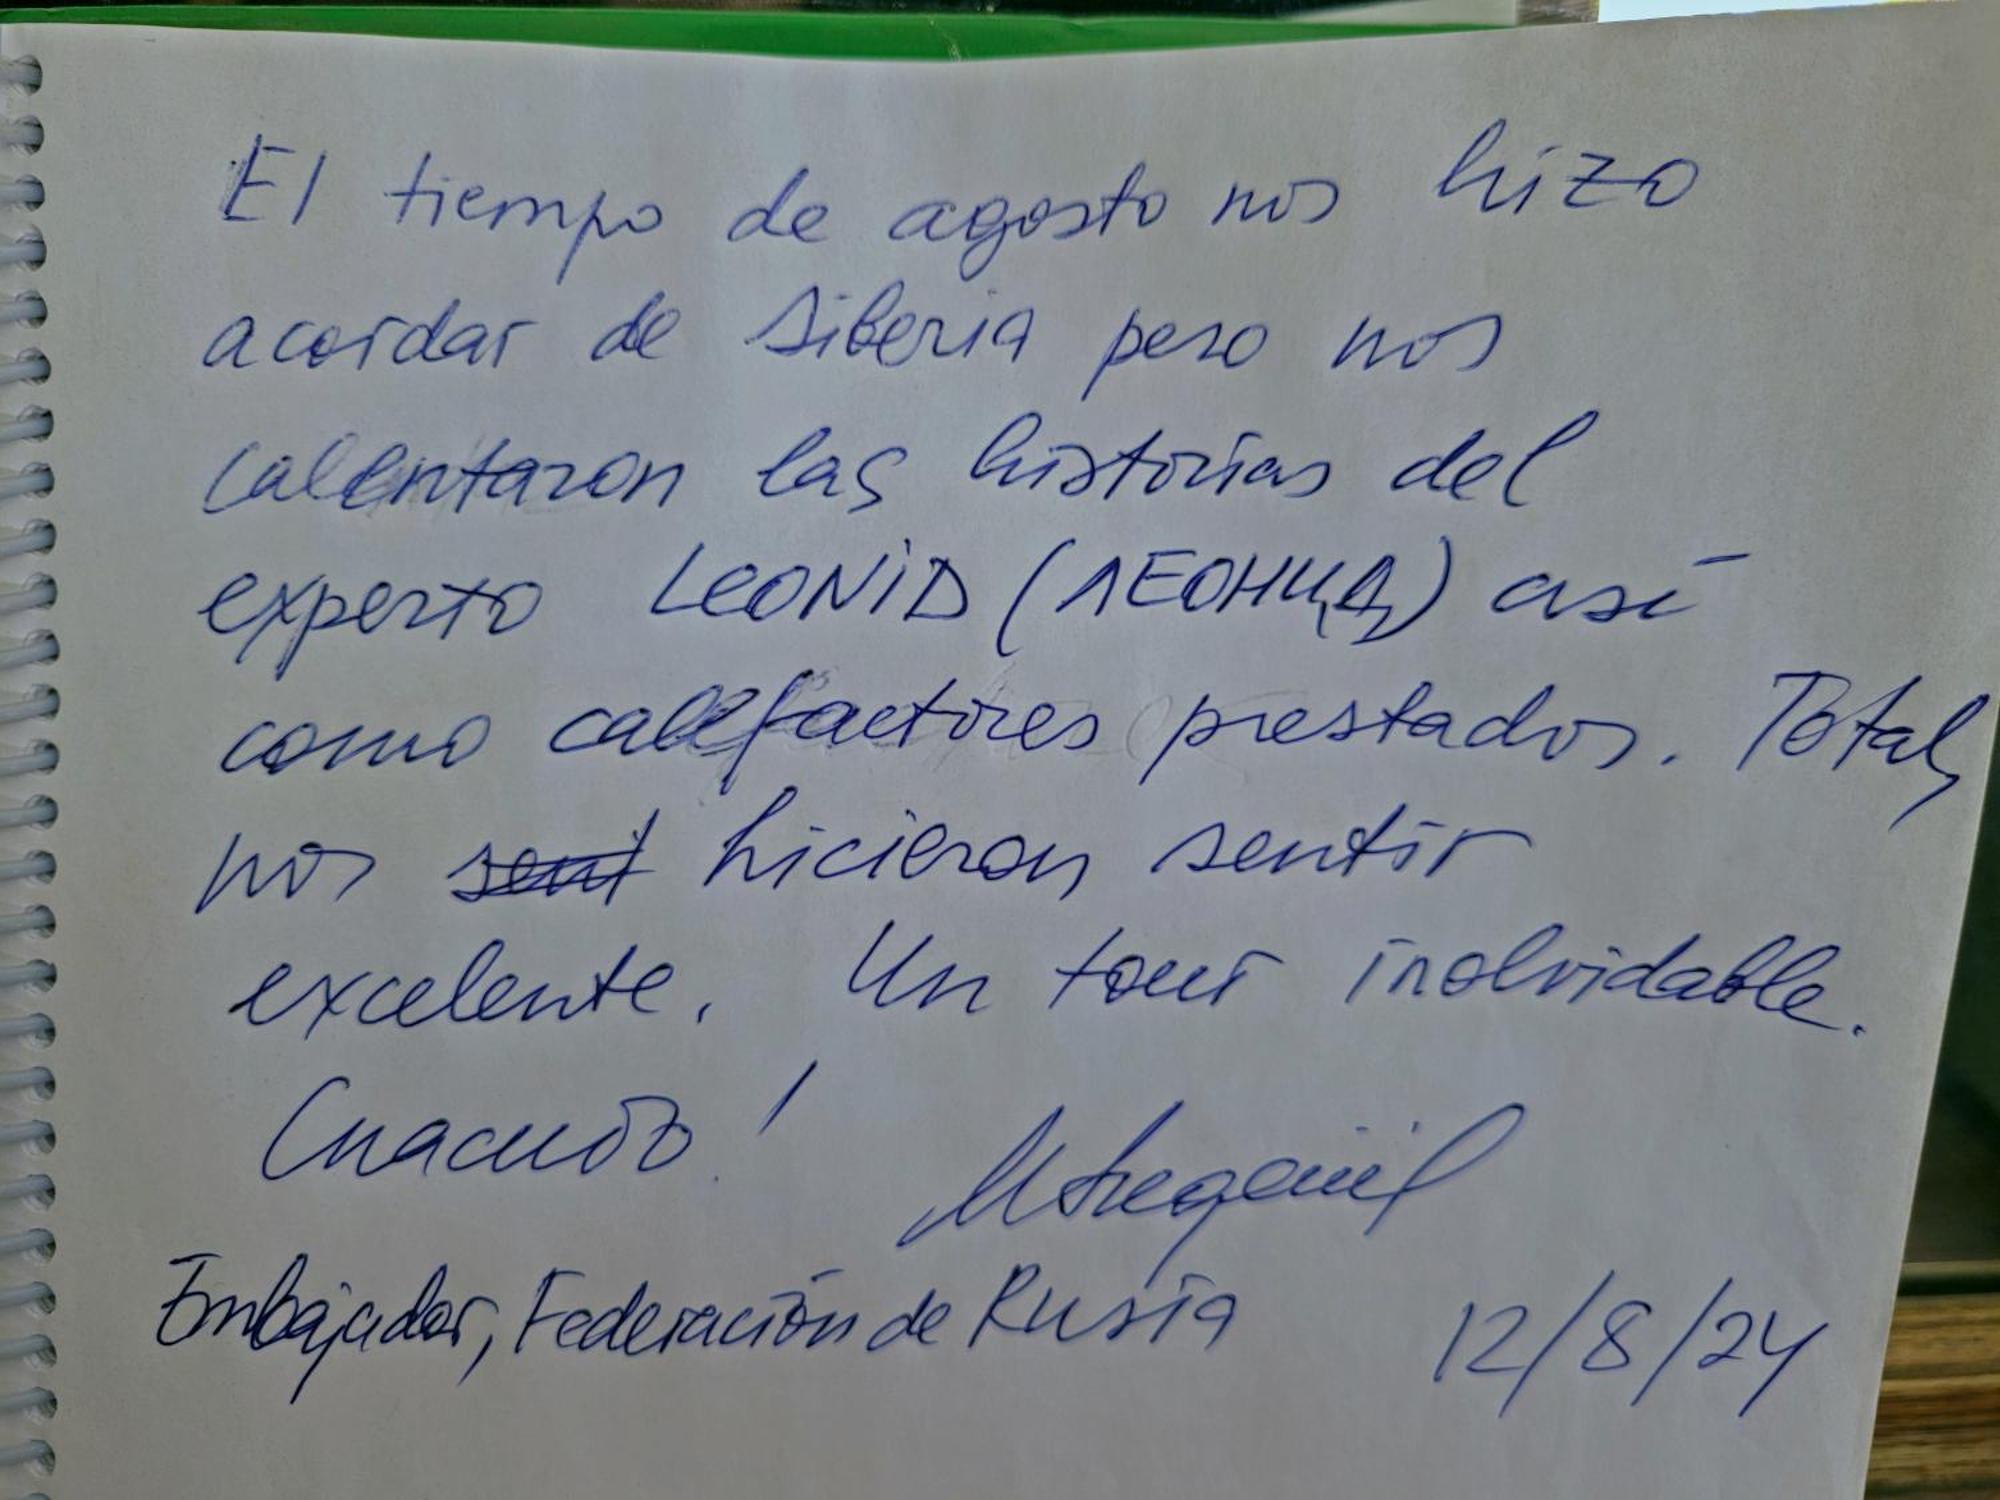 El tiempo de agosto nos hizo
acordar de Siberia pero nos
calentaron las historias del
experto LEONiD (ЛЕОНИД) así
como calefactores prestados. Total,
nos sent hicieron sentir
excelente. Un tour inolvidable.
Спасибо!
Embajador, Federación de Rusia 12/8/24